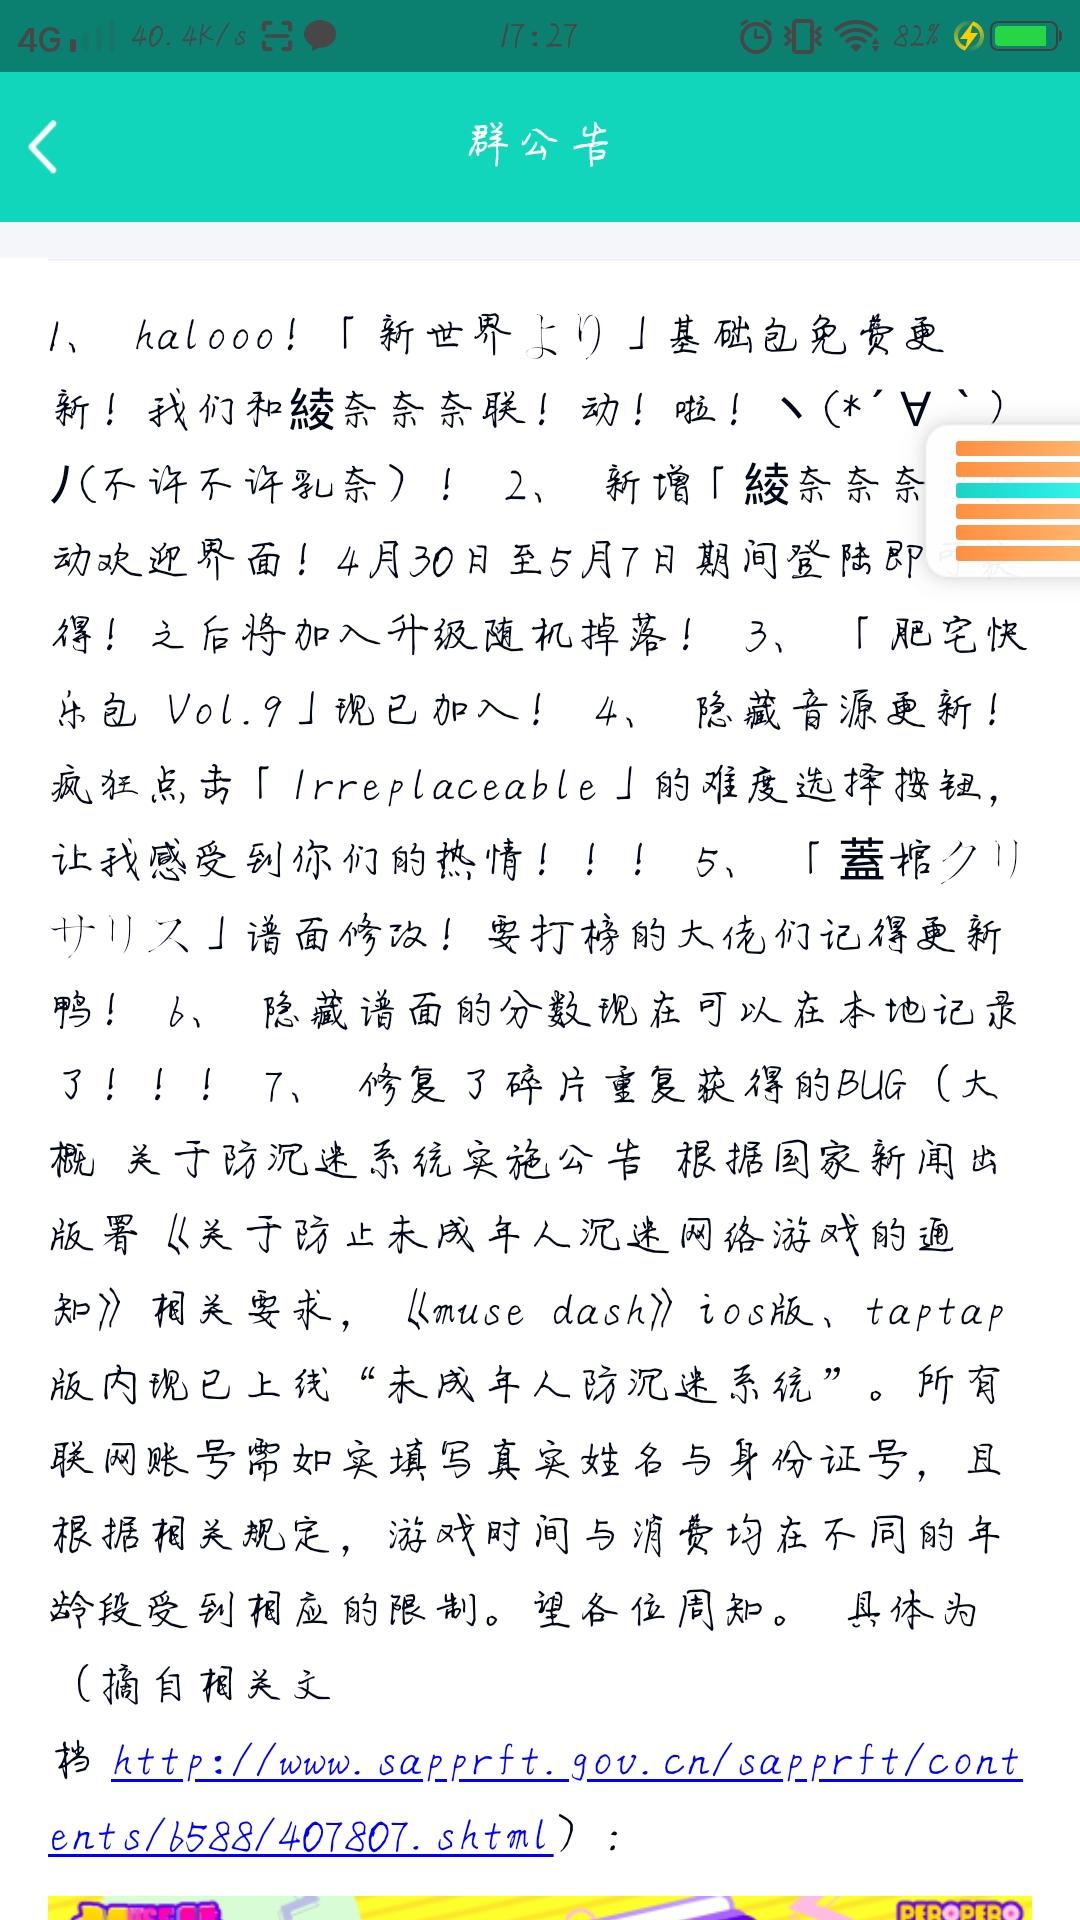 4G 40.4K/s 17:27 82%
群公告
1、 halooo！「新世界より」基础包免费更
新！我们和綾奈奈奈联！动！啦！ヽ(*´∀｀)
ﾉ(不许不许乳奈）！ 2、 新增「綾奈奈奈
动欢迎界面！4月30日至5月7日期间登陆即可获
得！之后将加入升级随机掉落！ 3、 「肥宅快
乐包 Vol.9」现已加入！ 4、 隐藏音源更新！
疯狂点击「Irreplaceable」的难度选择按钮，
让我感受到你们的热情！！！ 5、 「蓋棺クリ
サリス」谱面修改！要打榜的大佬们记得更新
鸭！ 6、 隐藏谱面的分数现在可以在本地记录
了！！！ 7、 修复了碎片重复获得的BUG（大
概 关于防沉迷系统实施公告 根据国家新闻出
版署《关于防止未成年人沉迷网络游戏的通
知》相关要求，《muse dash》ios版、taptap
版内现已上线“未成年人防沉迷系统”。所有
联网账号需如实填写真实姓名与身份证号，且
根据相关规定，游戏时间与消费均在不同的年
龄段受到相应的限制。望各位周知。 具体为
（摘自相关文
档 http://www.sapprft.gov.cn/sapprft/cont
ents/6588/407807.shtml）：
PEROPERO